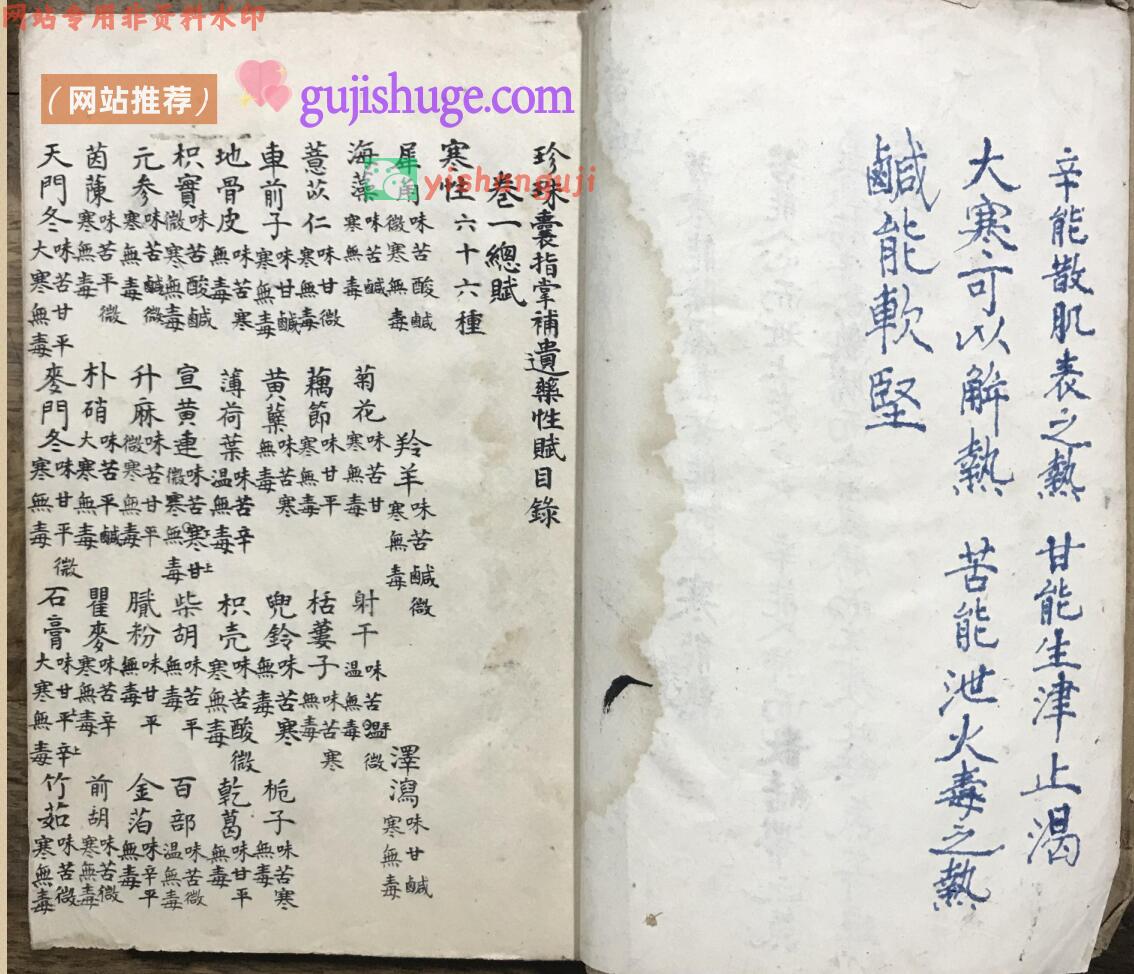 网站专用非资料水印
（网站推荐）
gujishuge.com
yishanguji
辛能散肌表之熱 甘能生津止渴
大寒可以解熱 苦能泄火毒之熱
鹹能軟堅
珍珠囊指掌補遺藥性賦目錄
卷一總賦
寒性六十六種
犀角 味苦酸鹹微寒無毒 羚羊 味苦鹹微寒無毒 澤瀉 味甘鹹寒無毒
海藻 味苦鹹寒無毒 菊花 味苦甘寒無毒 射干 味苦微溫無毒
薏苡仁 味甘微寒無毒 藕節 味甘平寒無毒 栝蔞子 味苦寒無毒
車前子 味甘鹹寒無毒 黃蘗 味苦寒無毒 兜鈴 味苦寒無毒 梔子 味苦寒無毒
地骨皮 味苦寒無毒 薄荷葉 味苦辛溫無毒 枳壳 味苦酸微寒無毒 乾葛 味甘平無毒
枳實 味苦酸鹹微寒無毒 宣黃連 味苦寒甘微寒無毒 柴胡 味苦平無毒 百部 味苦微溫無毒
元參 味苦鹹微寒無毒 升麻 味苦甘平微寒無毒 膩粉 味甘平無毒 金箔 味辛平無毒
茵蔯 味苦平微寒無毒 朴硝 味苦平鹹大寒無毒 瞿麥 味苦辛寒無毒 前胡 味苦微寒無毒
天門冬 味苦甘平大寒無毒 麥門冬 味甘平微寒無毒 石膏 味甘平辛大寒無毒 竹茹 味苦微寒無毒